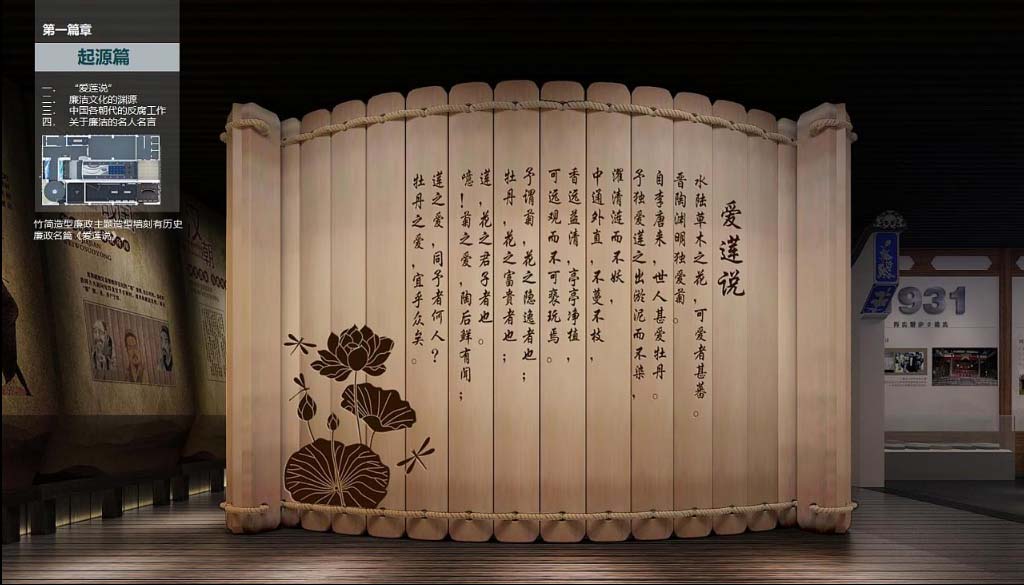 第一篇章
起源篇
一、 “爱莲说”
二、 廉洁文化的渊源
三、 中国各朝代的反腐工作
四、 关于廉洁的名人名言
竹简造型廉政主题造型墙刻有历史
廉政名篇《爱莲说》
爱莲说
水陆草木之花，可爱者甚蕃。
晋陶渊明独爱菊。
自李唐来，世人甚爱牡丹。
予独爱莲之出淤泥而不染，
濯清涟而不妖，
中通外直，不蔓不枝，
香远益清，亭亭净植，
可远观而不可亵玩焉。
予谓菊，花之隐逸者也；
牡丹，花之富贵者也；
莲，花之君子者也。
噫！菊之爱，陶后鲜有闻；
莲之爱，同予者何人？
牡丹之爱，宜乎众矣。
931